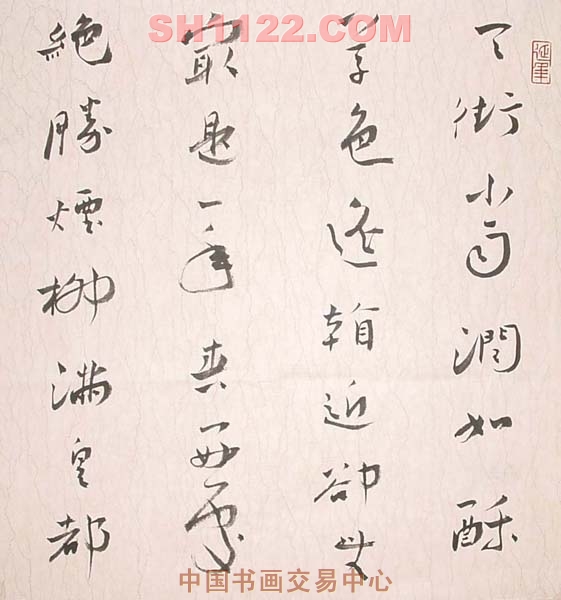 SH1122.COM
天街小雨潤如酥
草色遙看近卻無
最是一年春好處
絕勝煙柳滿皇都
中国书画交易中心